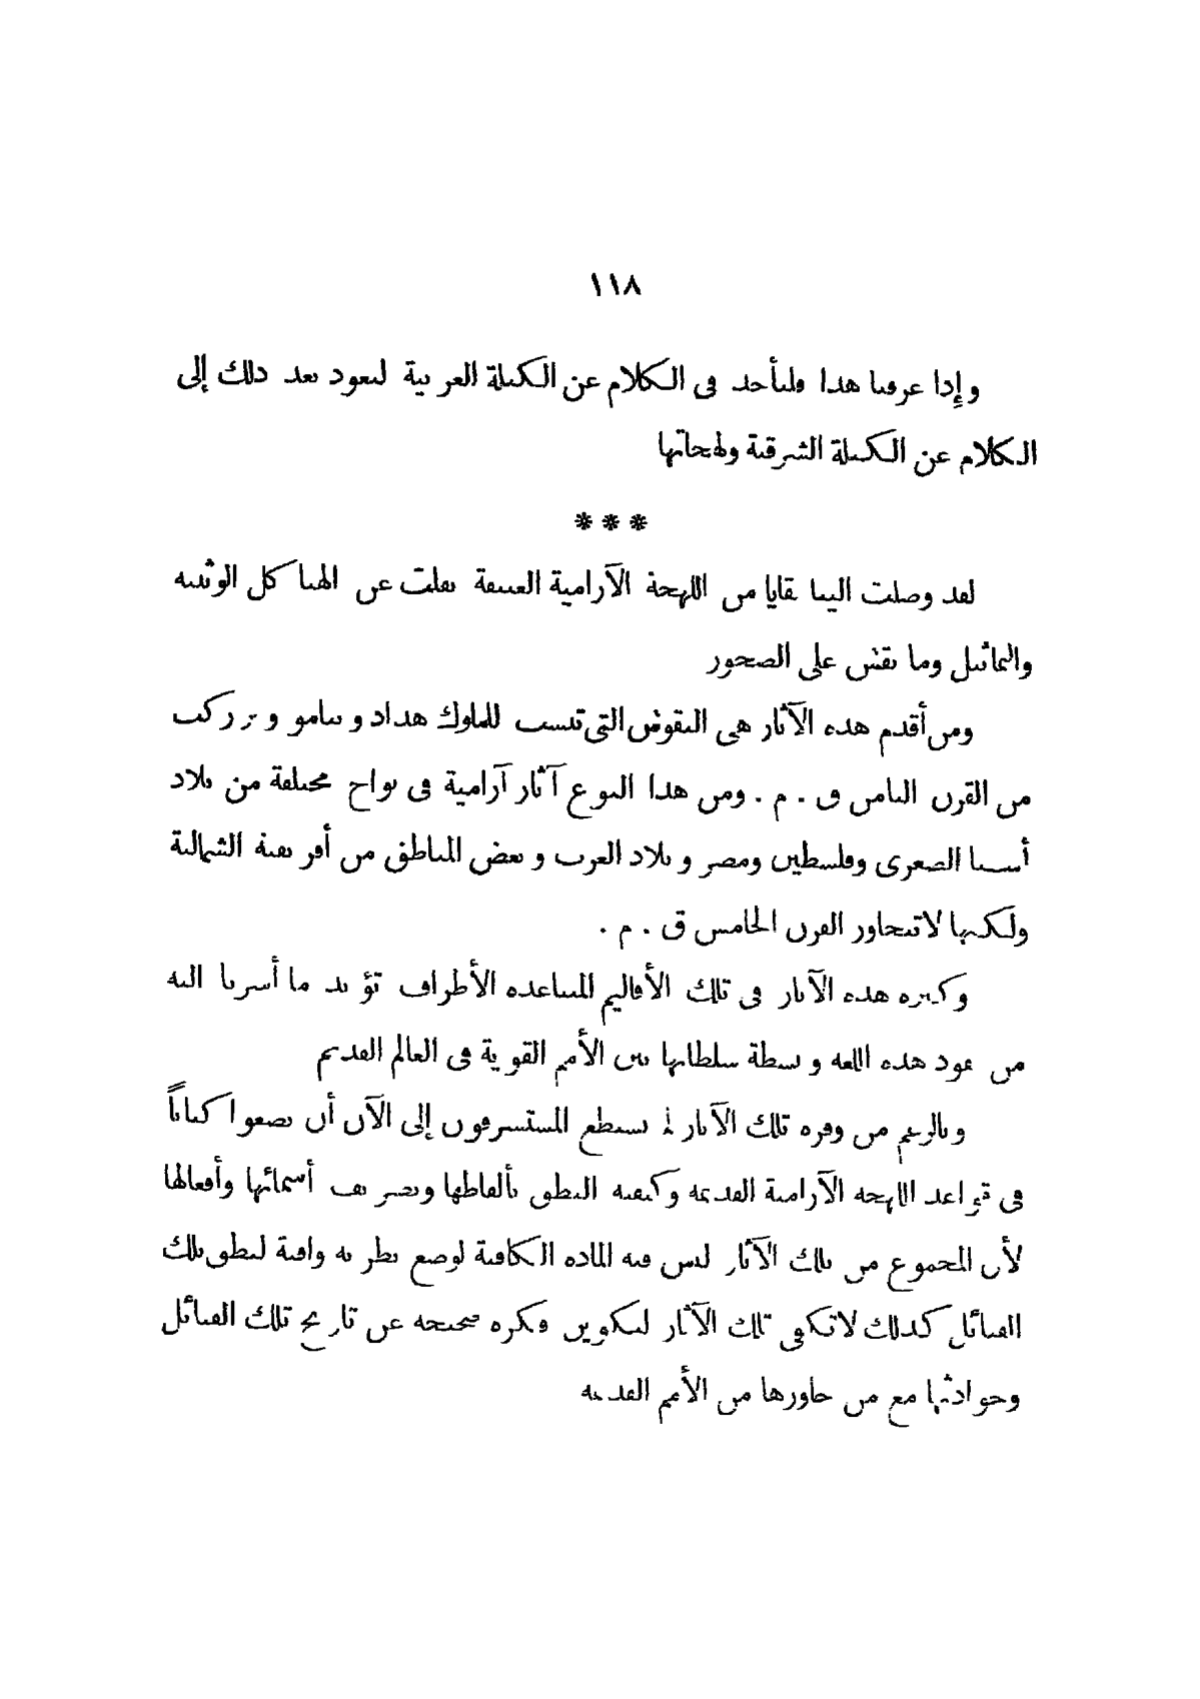 ١١٨
وإذا عرفنا هذا فلنأخذ فى الكلام عن الكتلة العربية لنعود بعد ذلك إلى
الكلام عن الكتلة الشرقية ولهجاتها
***
لقد وصلت الينا بقايا من اللهجة الآرامية العتيقة نقلت عن الهياكل الوثنية
والتماثيل وما نقش على الصخور
ومن أقدم هذه الآثار هى النقوش التى تنسب للملوك هداد و بنامو و بر ركب
من القرن الثامن ق . م . ومن هذا النوع آثار آرامية فى نواح مختلفة من بلاد
أسيا الصغرى وفلسطين ومصر و بلاد العرب و بعض المناطق من أفريقية الشمالية
ولكنها لا تتجاوز القرن الخامس ق . م .
وكثرة هذه الآثار فى تلك الأقاليم المتباعدة الأطراف تؤيد ما أشرنا اليه
من نفوذ هذه اللغة و بسطة سلطانها بين الأمم القوية فى العالم القديم
وبالرغم من وفرة تلك الآثار لم يستطع المستشرقون إلى الآن أن يضعوا كتاباً
فى قواعد اللهجة الآرامية القديمة وكيفية النطق بألفاظها وتصريف أسمائها وأفعالها
لأن المجموع من تلك الآثار ليس فيه المادة الكافية لوضع نظرية وافية لنطق تلك
القبائل كذلك لا تكفى تلك الآثار لتكوين فكرة صحيحة عن تاريخ تلك القبائل
وحوادثها مع من جاورها من الأمم القديمة